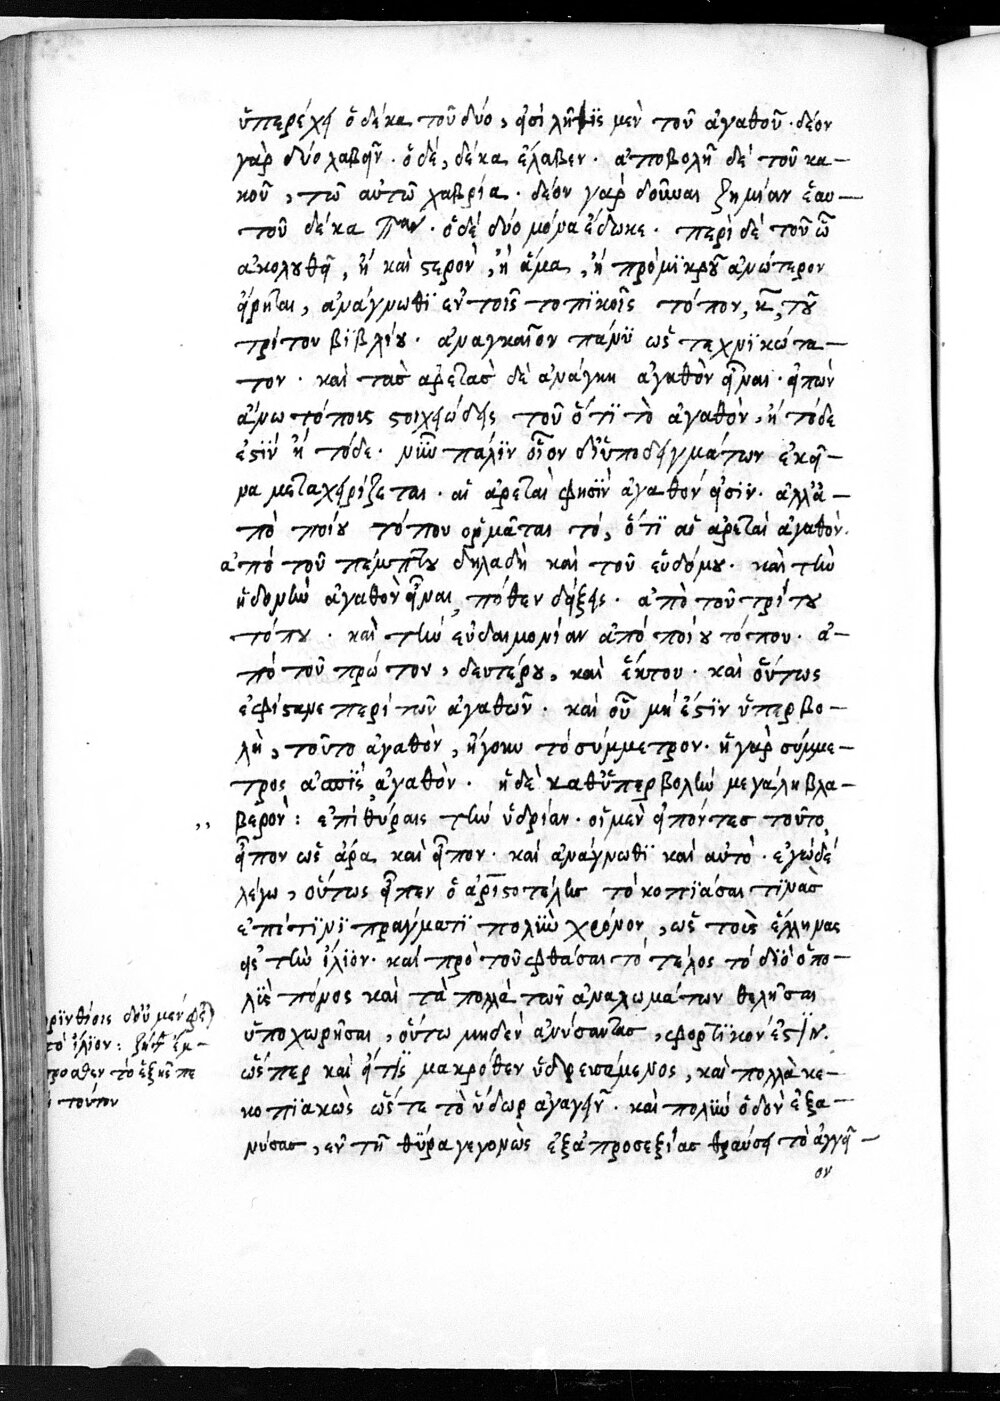 ὑπερέχει ὁ δέκα τοῦ δύο, εἰσὶ λῆψϊς μὲν τοῦ ἀγαθοῦ · δέον
γὰρ δύο λαβεῖν · ὁ δὲ, δέκα ἔλαβεν · ἀποβολὴ δὲ τοῦ κα–
κοῦ, τῶ αὐτῶ χαβρία · δέον γὰρ δοῦναι ζημίαν ἑαυ–
τοῦ δέκα · ὁ δὲ δύο μόνα ἔδωκε · περὶ δὲ τοῦ ὧ
ἀκολουθεῖ, ἢ καὶ ὕστερον, ἢ ἅμα, ἢ πρὸ μϊκροῦ ἀνώτερον
εἴρηται, ἀνάγνωθϊ ἐν τοῖς τοπϊκοῖς τόπον, κ, τοῦ
τρίτου βϊβλίου · ἀναγκαῖον πάνϋ ὡς τεχνϊκώτα–
τον · καὶ τὰσ ἀρετὰσ δὲ ἀνάγκη ἀγαθὸν εἶναι · εἰπὼν
ἄνω τόπους στοιχειώδεις τοῦ ὅτϊ τὸ ἀγαθὸν, ἢ τόδε
ἐστϊν ἢ τόδε · νῦν πάλϊν οἷον δϊ ὑποδειγμάτων ἐκεῖ–
να μεταχειρίζεται · αἱ ἀρεταὶ φησϊν ἀγαθόν εἰσϊν · ἀλλ' ἀ–
πὸ ποίου τόπου ὁρμᾶται τό, ὅτϊ αἱ ἀρεταὶ ἀγαθόν.
ἀπὸ τοῦ πέμπτου δηλαδὴ καὶ τοῦ ἑβδόμου · καὶ τὴν
ἡδονὴν ἀγαθὸν εἶναι, πόθεν δείξεις · ἀπὸ τοῦ τρίτου
τόπου · καὶ τὴν εὐδαιμονίαν ἀπὸ ποίου τόπου · ἀ–
πὸ τοῦ πρώτου, δευτέρου, καὶ ἕκτου · καὶ οὕτως
ἐφίσταμε περὶ τῶν ἀγαθῶν · καὶ οὗ μή ἐστϊν ὑπερβο–
λὴ, τοῦτο ἀγαθὸν, ἤγουν τὸ σύμμετρον · ἡ γὰρ σύμμε–
τρος ἀγαθὸν · ἡ δὲ καθ' ὑπερβολὴν μεγάλη βλα–
βερόν : ἐπὶ θύραις τὴν ὑδρίαν · οἱ μὲν εἰπόντεσ τοῦτο
εἶπον ὡς ἄρα καὶ εἶπον · καὶ ἀνάγνωθϊ καὶ αὐτὸ · ἐγὼ δὲ
λέγω, οὕτως εἶπεν ὁ ἀρϊστοτέλης τὸ κοπϊάσαι τϊνὰσ
ἐπὶ τϊνϊ πράγματϊ πολὺν χρόνον, ὡς τοὺς ἕλληνας
εἰς τὴν ἴλϊον · καὶ πρὸ τοῦ φθάσαι τὸ τέλος τὸ δϊ ὃ ὁ πο–
λὺς πόνος καὶ τὰ πολλὰ τῶν ἀναλωμάτων θελῆσαι
ὑποχωρῆσαι, οὕτω μηδὲν ἀνύσαντασ, φορτϊκόν ἐστϊν.
ὥσπερ καὶ εἴ τις μακρόθεν ὑδρευσάμενος, καὶ πολλὰ κε–
κοπϊακὼς ὥστε τὸ ὕδωρ ἀγαγεῖν · καὶ πολὺν ὁδὸν ἐξα–
νύσασ, ἐν τῇ θύρα γεγονὼς ἐξ ἀπροσεξίασ θραύσει τὸ ἀγγεῖ–
ον